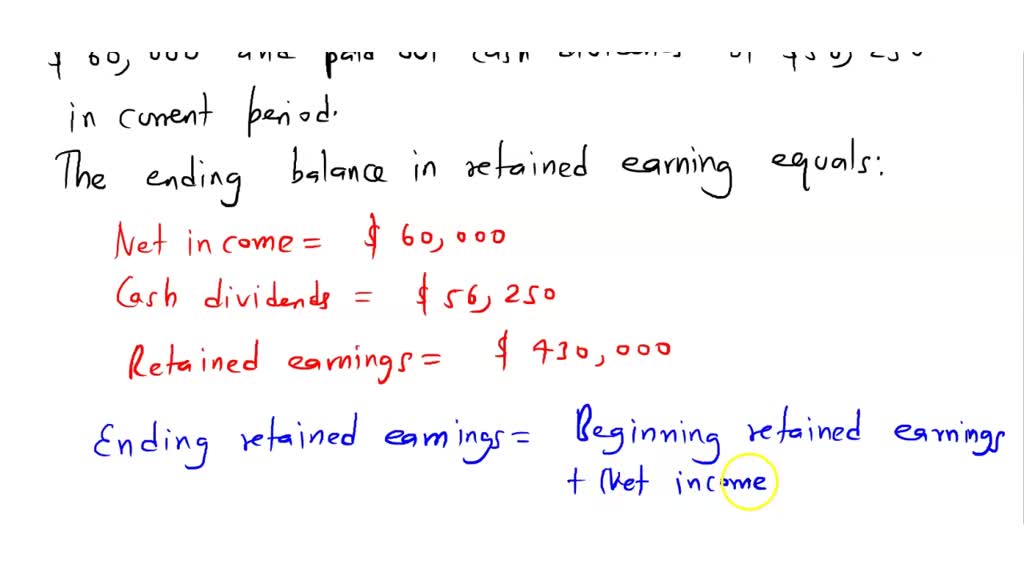 $ 60,000 and paid out cash dividends of $56,250
in current period.
The ending balance in retained earning equals:
Net income = $ 60,000
Cash dividends = $ 56,250
Retained earnings = $ 430,000
Ending retained earnings = Beginning retained earnings
+ Net income